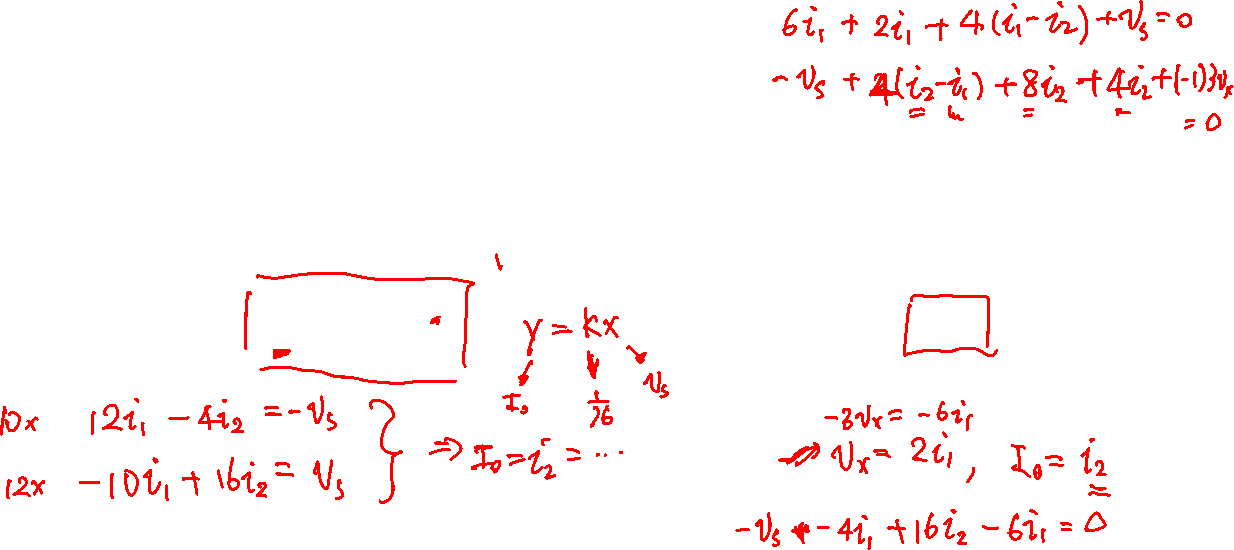 6i₁ + 2i₁ + 4(i₁-i₂) + Vs = 0
-Vs + 4(i₂-i₁) + 8i₂ + 4i₂ + (-1)3Vx
= 0
y = kx
I₀ 1/76 Vs
10x 12i₁ - 4i₂ = -Vs
12x -10i₁ + 16i₂ = Vs
⇒ I₀ = i₂ = ...
-3Vx = -6i₁
Vx = 2i₁, I₀ = i₂
-Vs - 4i₁ + 16i₂ - 6i₁ = 0